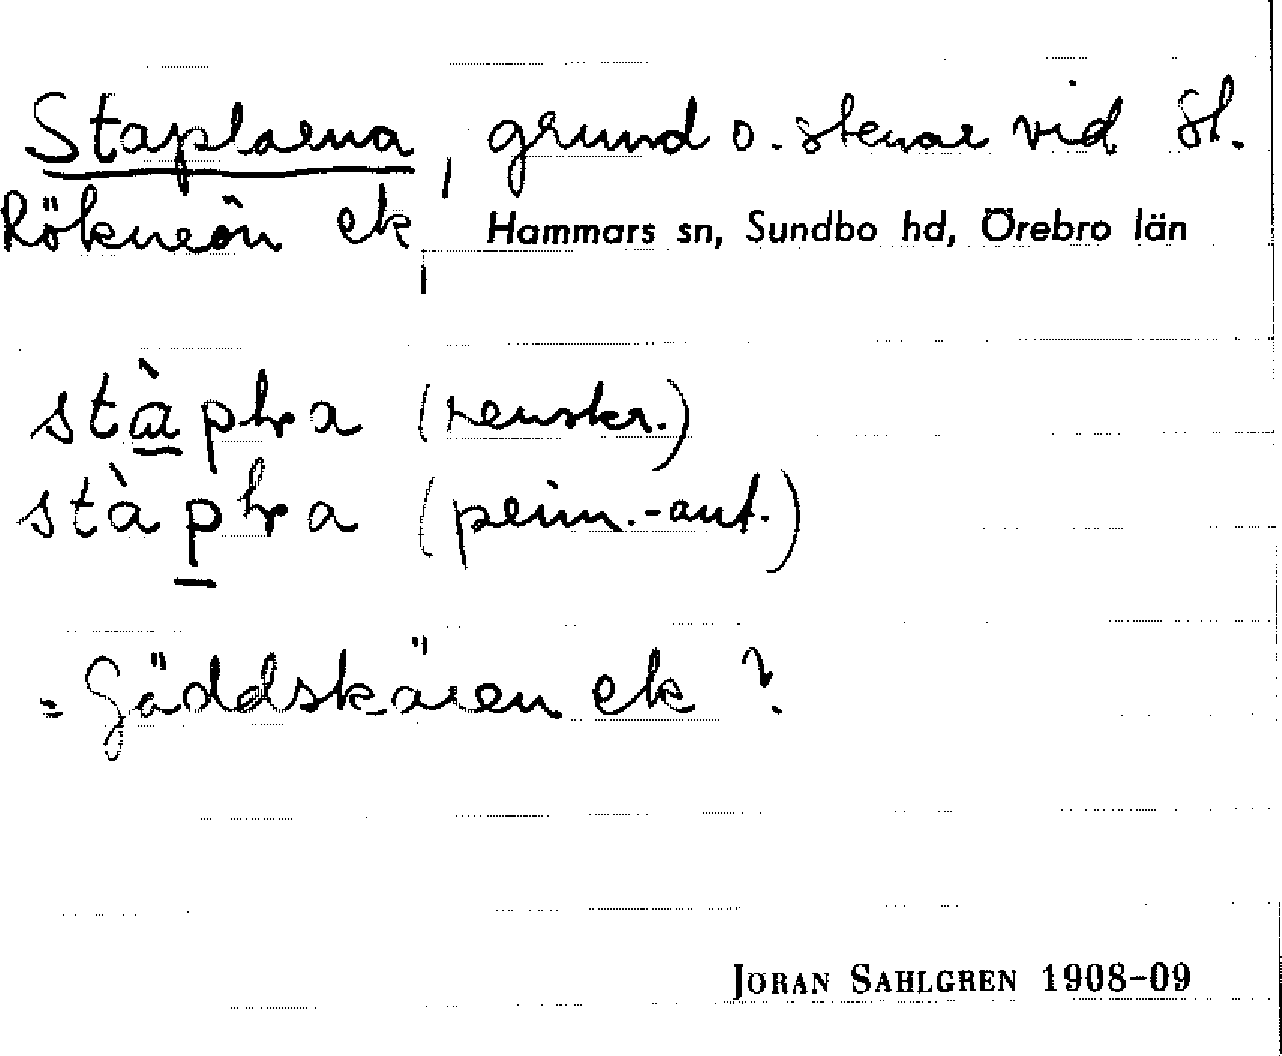 Staplarna, grund o. stenar vid St.
Rökneön ek, Hammars sn, Sundbo hd, Örebro län
stàpɫra (renskr.)
stàpɫra (prim.-ant.)
= Gäddskären ek ?
JORAN SAHLGREN 1908-09